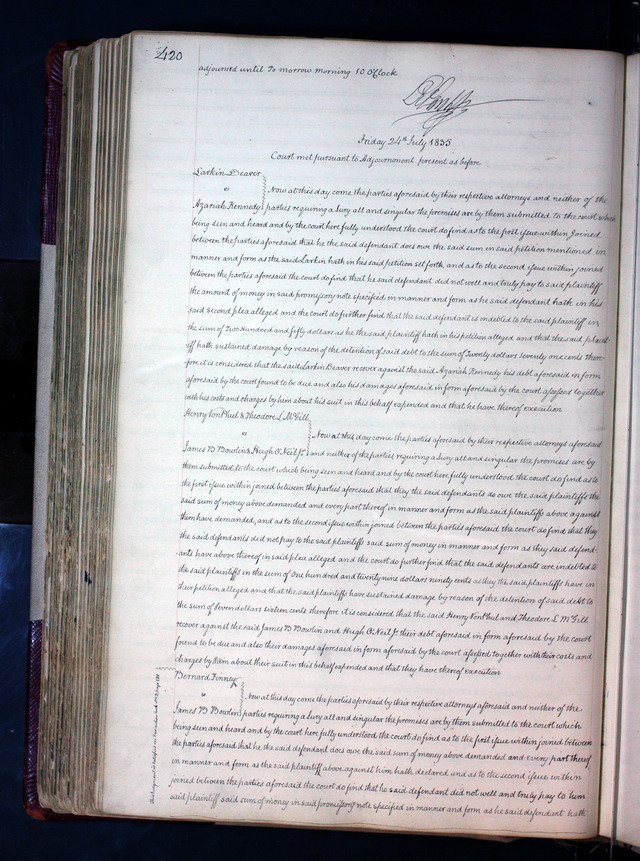 420
adjourned until To morrow morning 10 O'Clock
Friday 24th July 1835
Court met pursuant to Adjournment present as before
Larkin Deaver
vs
Now at this day come the parties aforesaid by their respective attorneys and neither of the
Azariah Kennedy parties requiring a Jury all and singular the premises are by them submitted to the court which
being seen and heard and by the court here fully understood the court do find as to the first issue within Joined
between the parties aforesaid that he the said defendant does owe the said sum in said petition mentioned in
manner and form as the said Larkin hath in his said petition set forth and as to the second issue within joined
between the parties aforesaid the court do find that he said defendant did not well and truly pay to said plaintiff
the amount of money in said promissory note specified in manner and form as he said defendant hath in his
said second plea alleged and the court do further find that the said defendant is indebted to the said plaintiff in
the sum of Two Hundred and fifty dollars as he the said plaintiff hath in his petition alleged and that the said plaint-
iff hath sustained damage by reason of the detention of said debt to the sum of Twenty dollars seventy one cents there-
fore it is considered that the said Larkin Deaver recover against the said Azariah Kennedy his debt aforesaid in form
aforesaid by the court found to be due and also his damages aforesaid in form aforesaid by the court assessed together
with his costs and charges by him about his suit in this behalf expended and that he have thereof execution
Henry Von Phul & Theodore L. McGill
vs
Now at this day come the parties aforesaid by their respective attorneys aforesaid
James B Bowlin & Hugh O'Neil Jr. and neither of the parties requiring a Jury all and singular the premises are by
them submitted to the court which being seen and heard and by the court here fully understood the court do find as to
the first issue within joined between the parties aforesaid that they the said defendants do owe the said plaintiffs the
said sum of money above demanded and every part thereof in manner and form as the said plaintiffs above against
them have demanded, and as to the second issue within joined between the parties aforesaid the court do find that they
the said defendants did not pay to the said plaintiffs said sum of money in manner and form as they said defend-
ants have above thereof in said plea alleged and the court do further find that the said defendants are indebted to
the said plaintiffs in the sum of One hundred and twenty nine dollars ninety cents as they the said plaintiffs have in
their petition alleged and that the said plaintiffs have sustained damage by reason of the detention of said debt to
the sum of Seven dollars sixteen cents therefore it is considered that the said Henry Von Phul and Theodore L McGill
recover against the said James B Bowlin and Hugh O'Neil Jr. their debt aforesaid in form aforesaid by the court
found to be due and also their damages aforesaid in form aforesaid by the court assessed together with their costs and
charges by them about their suit in this behalf expended and that they have thereof execution
Bernard Finney
vs
Now at this day come the parties aforesaid by their respective attorneys aforesaid and neither of the
James B Bowlin parties requiring a Jury all and singular the premises are by them submitted to the court which
being seen and heard and by the court here fully understood the court do find as to the first issue within joined between
the parties aforesaid that he the said defendant does owe the said sum of money above demanded and every part thereof
in manner and form as the said plaintiff above against him hath declared and as to the second issue within
joined between the parties aforesaid the court do find that he said defendant did not well and truly pay to him
said plaintiff said sum of money in said promissory note specified in manner and form as he said defendant hath